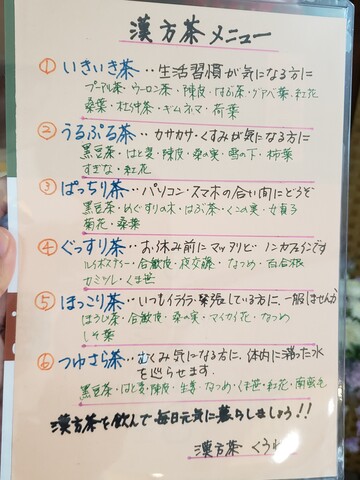 漢方茶メニュー
① いきいき茶‥生活習慣が気になる方に
プーアル茶・ウーロン茶・陳皮・はぶ茶・グアバ葉・紅花
桑葉・杜仲茶・ギムネマ・荷葉
② うるぷる茶‥カサカサ・くすみが気になる方に
黒豆茶・はと麦・陳皮・桑の実・雪の下・柿葉
すぎな・紅花
③ ぱっちり茶‥パソコン・スマホの合い間にどうぞ
黒豆茶・めぐすりの木・はぶ茶・くこの実・女貞子
菊花・桑葉
④ ぐっすり茶‥お休み前にマッタリと ノンカフェインです
ルイボスティー・合歓皮・夜交藤・なつめ・百合根
カミツレ・くま笹
⑤ ほっこり茶‥いつもイライラ・緊張している方に、一服しませんか
ほうじ茶・合歓皮・桑の実・マイカイ花・なつめ
しそ葉
⑥ つゆさら茶‥むくみ気になる方に、体内に溜った水
を巡らせます。
黒豆茶・はと麦・陳皮・生姜・なつめ・くま笹・紅花・南蛮毛
漢方茶を飲んで毎日元気に暮らしましょう!!
漢方茶 くう